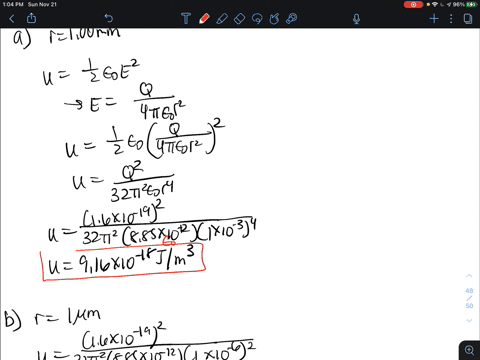 1:04 PM Sun Nov 21
96%
a) r=1.00mm
u = 1/2 ε₀E²
→ E = Q / 4πε₀r²
u = 1/2 ε₀ (Q / 4πε₀r²)²
u = Q² / 32π²ε₀r⁴
u = (1.6×10⁻¹⁹)² / 32π² (8.85×10⁻¹²)(1×10⁻³)⁴
u = 9.16×10⁻¹⁸ J/m³
48
/
50
b) r = 1μm
(1.6×10⁻¹⁹)²